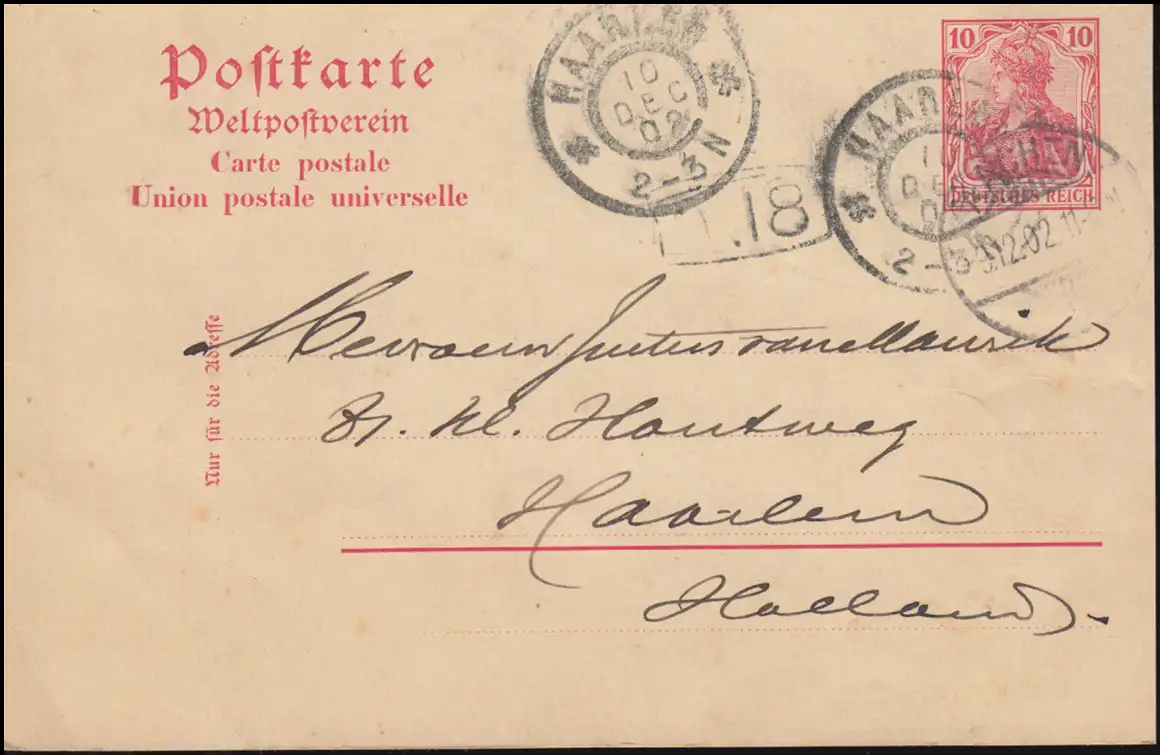 Postkarte
Weltpostverein
Carte postale
Union postale universelle
HAARLEM
10
DEC
02
2-3 N
.18
10 10
DEUTSCHES REICH
HAARLEM
10
DEC
2-3
9.12.02 11-
Nur für die Adresse
Mevrouw
Kl. Houtweg
Haarlem
Holland.